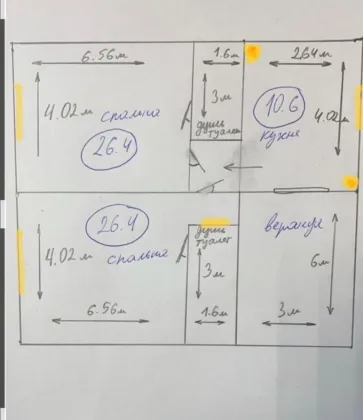 6.56м
1.6м
2.64м
4.02м спальня
26.4
3м
душ
туалет
10.6
кухня
4.02м
26.4
4.02м спальня
6.56м
душ
туалет
3м
1.6м
веранда
6м
3м